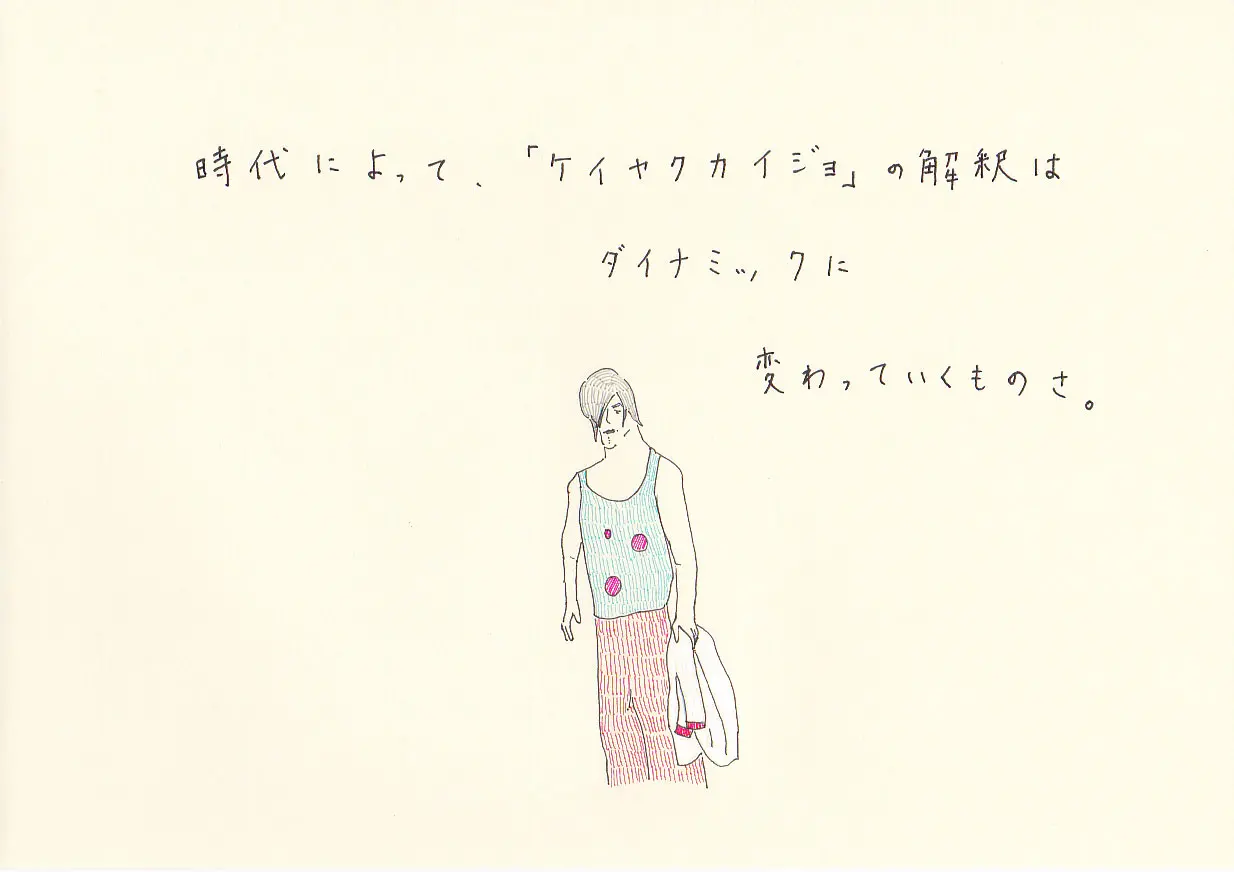 時代によって、「ケイヤクカイジョ」の解釈は
ダイナミックに
変わっていくものさ。